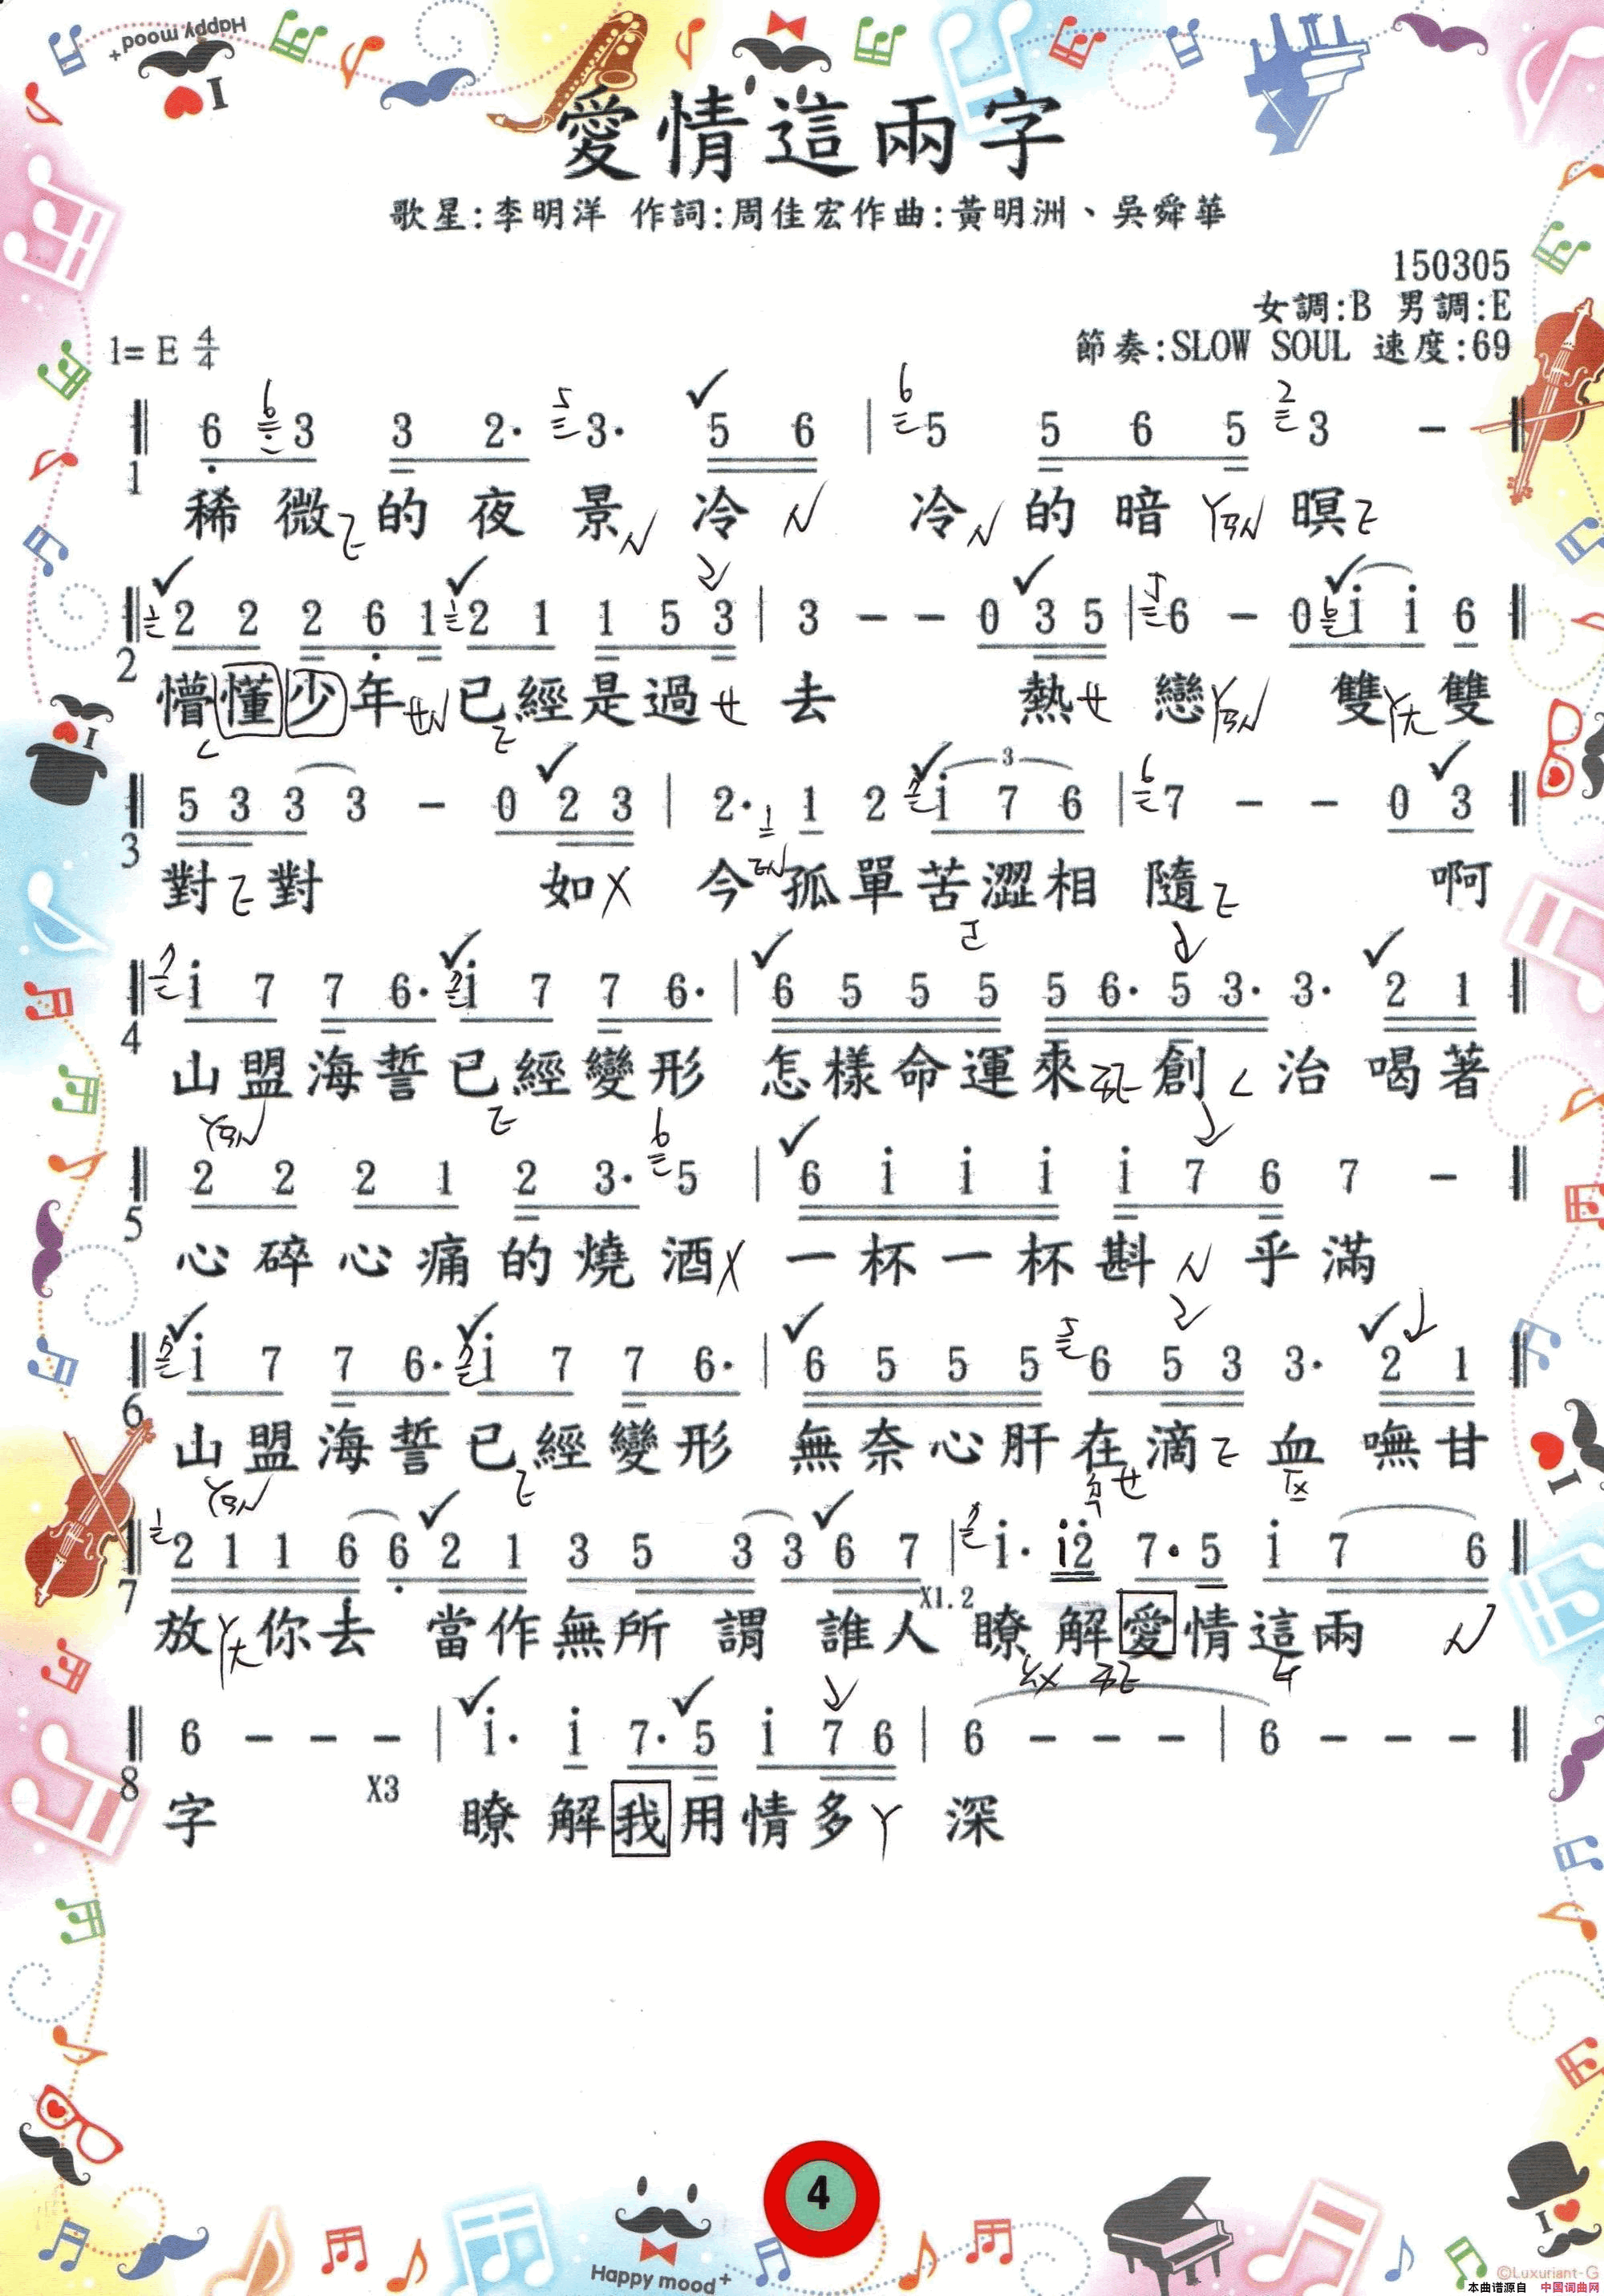 Happy mood+
I
愛情這兩字
歌星:李明洋 作詞:周佳宏作曲:黃明洲、吳舜華
150305
女調:B 男調:E
1= E 4/4 節奏:SLOW SOUL 速度:69
6 3 3 2· 3· 5 6 | 5 5 6 5 3 -
1 稀微的夜景冷 冷的暗暝
2 2 2 6 1 2 1 1 5 3 | 3 - - 0 3 5 | 6 - 0 i i 6
2 懵懂少年已經是過去 熱戀 雙雙
5 3 3 3 - 0 2 3 | 2· 1 2 i 7 6 | 7 - - 0 3
3 對對 如今孤單苦澀相隨 啊
i 7 7 6· i 7 7 6· | 6 5 5 5 5 6· 5 3· 3· 2 1
4 山盟海誓已經變形 怎樣命運來創治喝著
2 2 2 1 2 3· 5 | 6 i i i i 7 6 7 -
5 心碎心痛的燒酒 一杯一杯斟乎滿
i 7 7 6· i 7 7 6· | 6 5 5 5 6 5 3 3· 2 1
6 山盟海誓已經變形 無奈心肝在滴血嘸甘
2 1 1 6 6 2 1 3 5 3 3 6 7 | i· i2 7· 5 i 7 6
X1.2
7 放你去 當作無所謂 誰人瞭解愛情這兩
6 - - - | i· i 7· 5 i 7 6 | 6 - - - | 6 - - -
X3
8 字 瞭解我用情多深
4
Happy mood+
I
©Luxuriant-G
本曲谱源自 中国词曲网